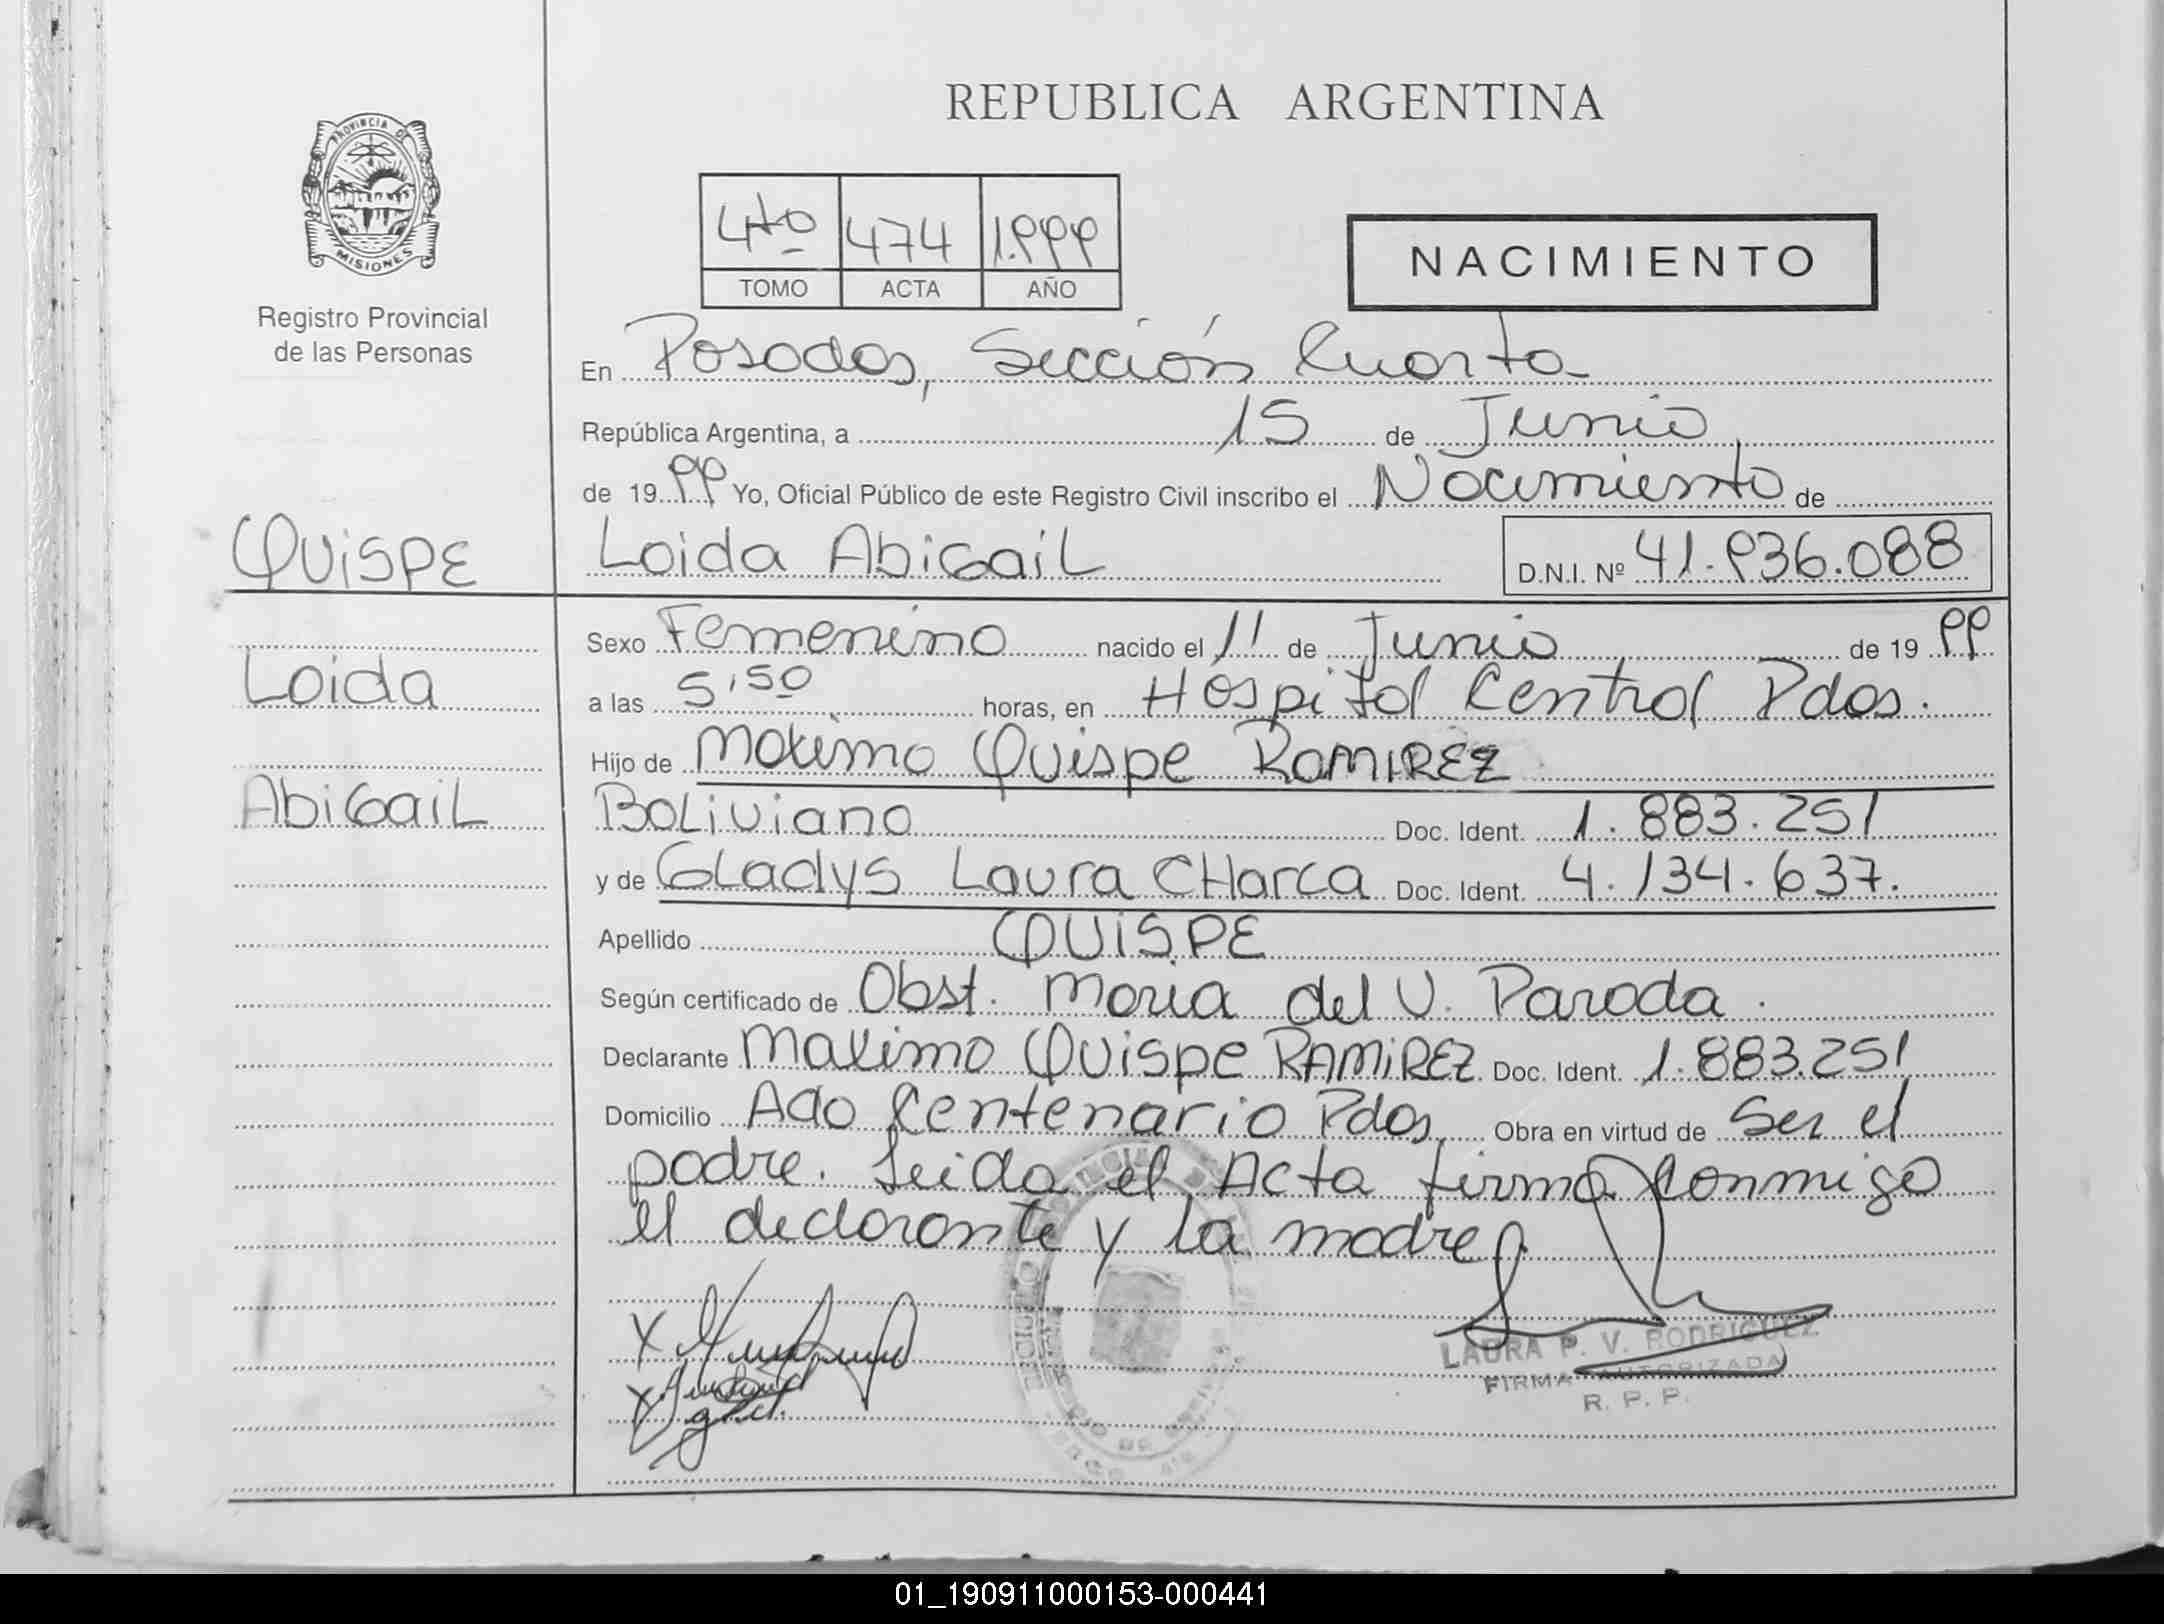 REPUBLICA ARGENTINA
PROVINCIA DE
MISIONES
Registro Provincial
de las Personas
4to 474 1.999
TOMO ACTA AÑO
NACIMIENTO
En Posadas, Sección Cuarta
República Argentina, a 15 de Junio
de 1999 Yo, Oficial Público de este Registro Civil inscribo el Nacimiento de
QUISPE Loida AbigaiL D.N.I. Nº 41.936.088
Sexo Femenino nacido el 11 de Junio de 1999
Loida a las 5,50 horas, en Hospital Central Pdas.
Hijo de Maximo Quispe RAMIREZ
AbigaiL BoLiviano Doc. Ident. 1.883.251
y de GLadys Laura CHarca Doc. Ident. 4.134.637.
Apellido QUISPE
Según certificado de Obst. Maria del V. Paroda.
Declarante Maximo Quispe RAMIREZ Doc. Ident. 1.883.251
Domicilio Ado Centenario Pdas, Obra en virtud de Ser el
padre. Leida el Acta firma Conmigo
el declarante y la madre
LAURA P. V. RODRIGUEZ
FIRMA AUTORIZADA
R. P. P.
01_190911000153-000441